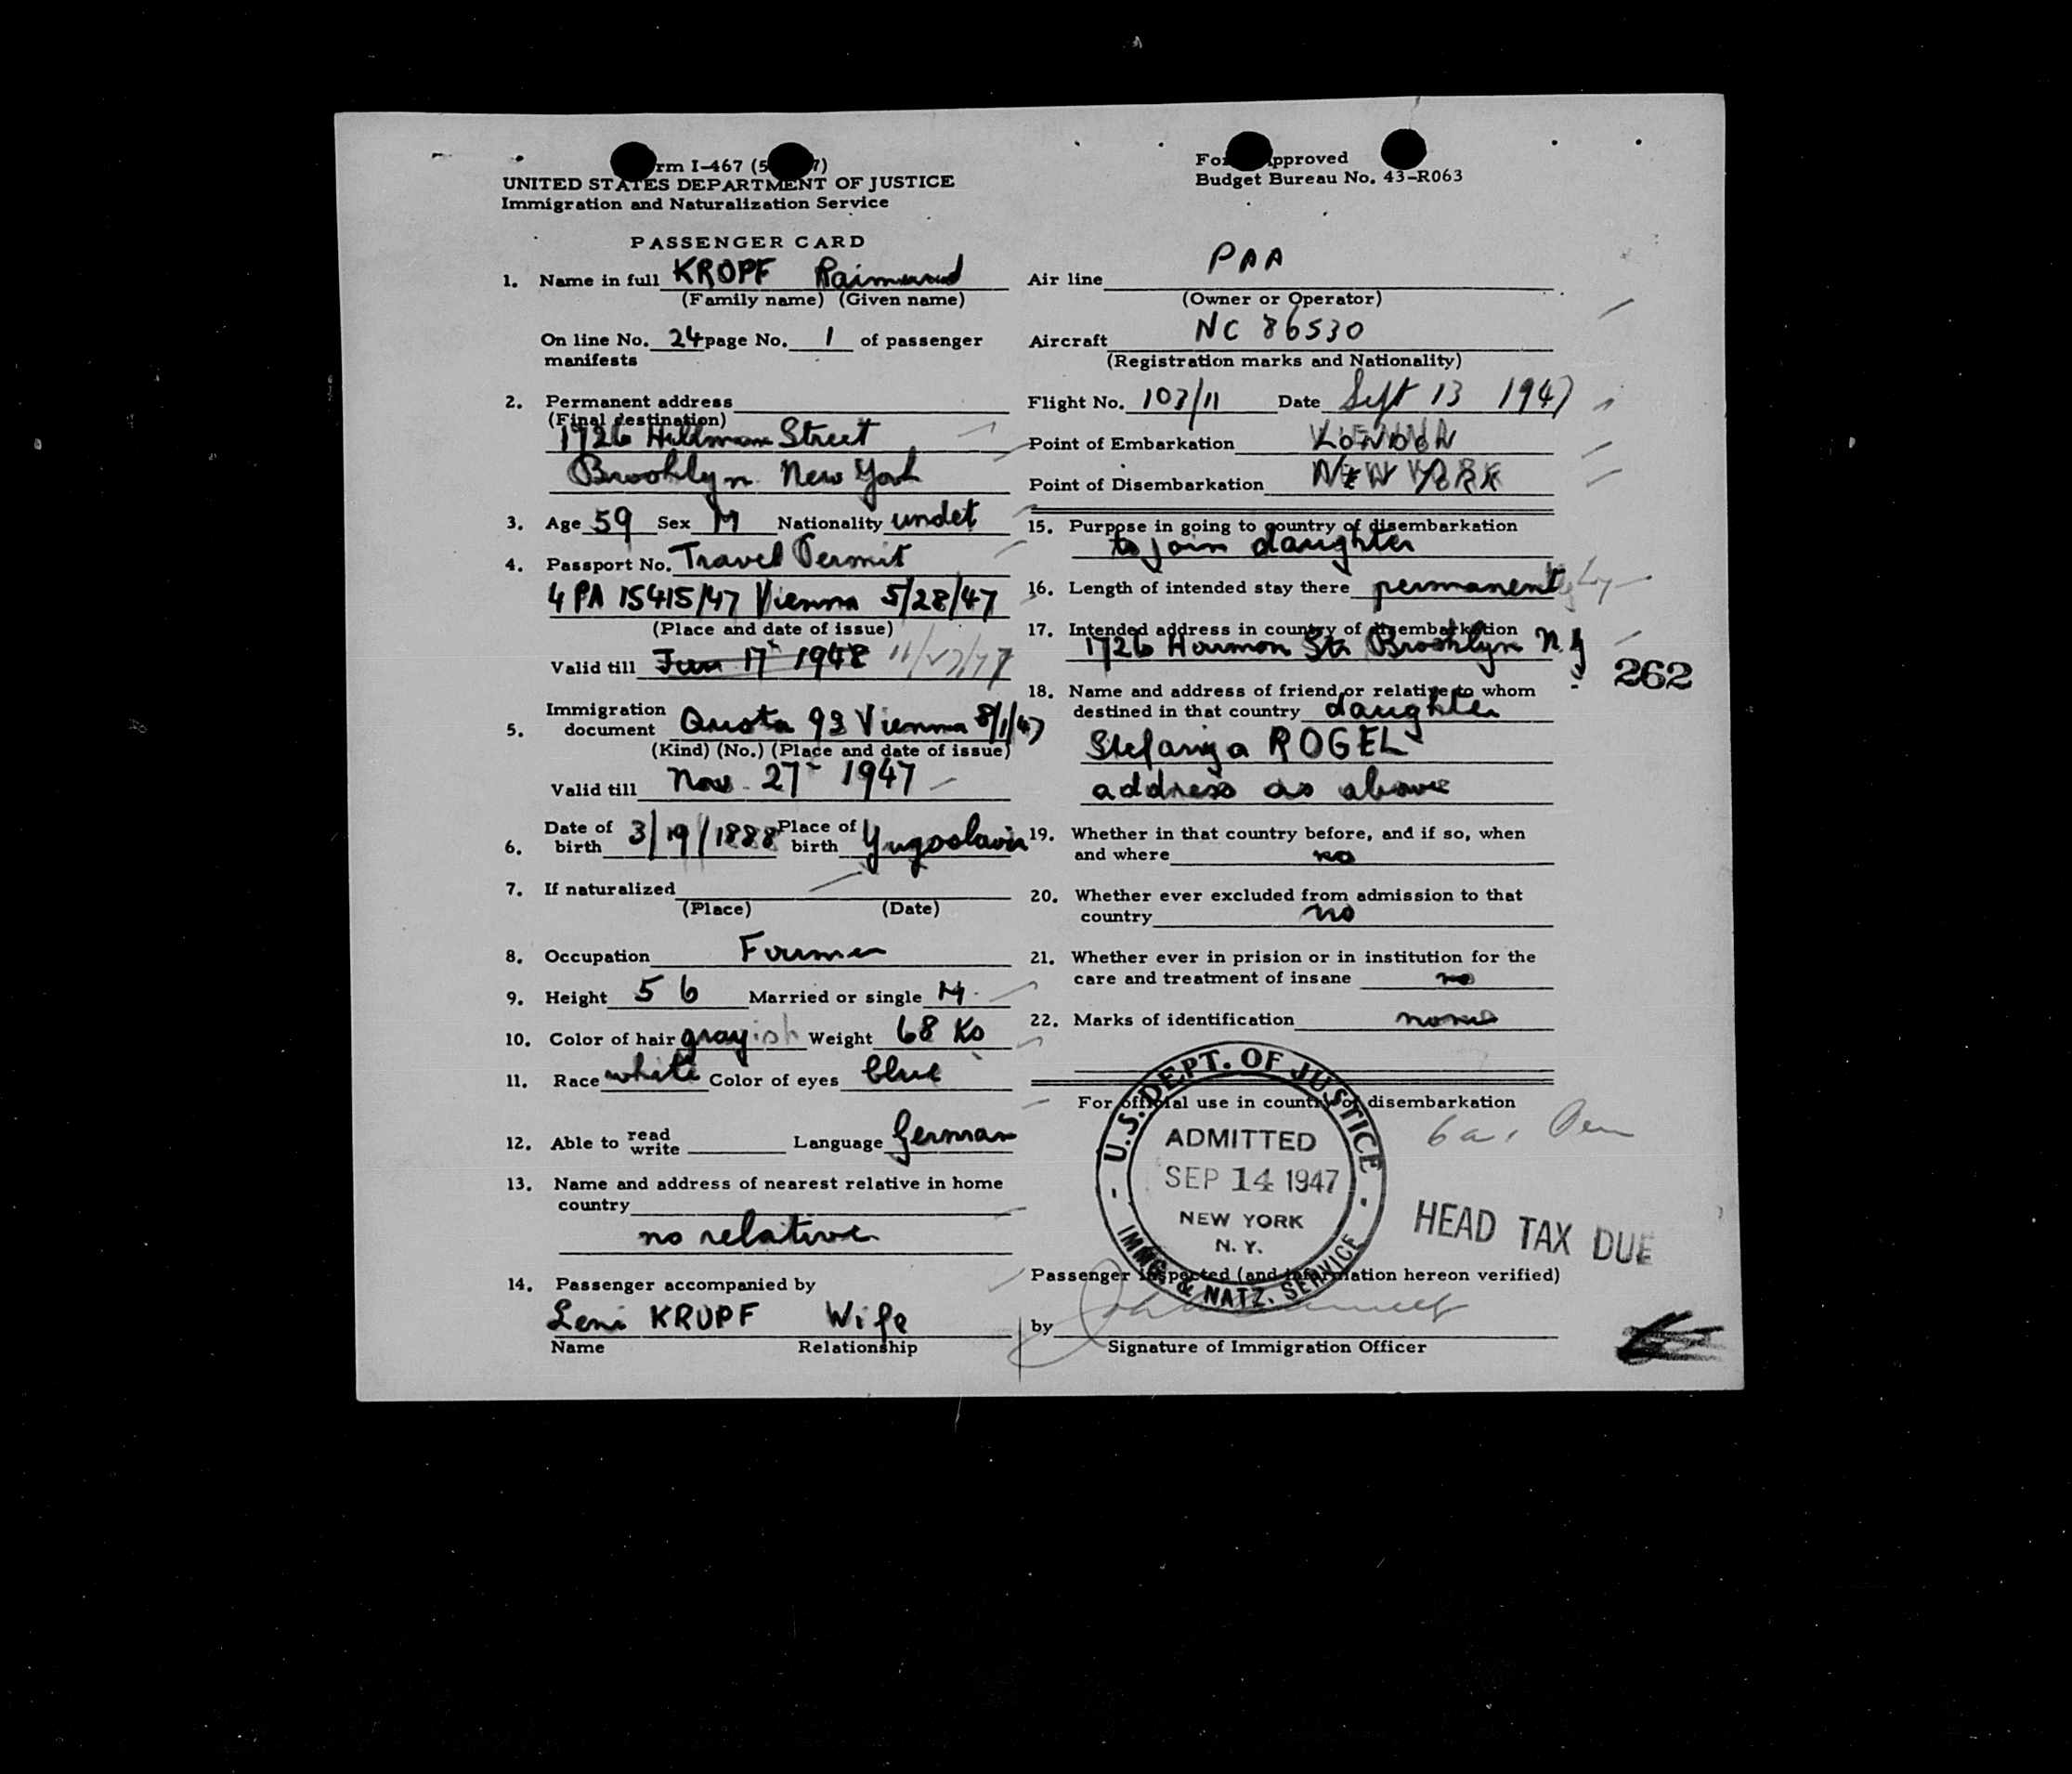 rm I-467 (5 7)
UNITED STATES DEPARTMENT OF JUSTICE
Immigration and Naturalization Service
For pproved
Budget Bureau No. 43-R063
PASSENGER CARD
1. Name in full KROPF Raimund
(Family name) (Given name)
On line No. 24 page No. 1 of passenger
manifests
2. Permanent address
(Final destination)
1726 Street
Brooklyn New York
3. Age 59 Sex M Nationality undet
4. Passport No. Travel Permit
4 PA 15415/47 Vienna 5/28/47
(Place and date of issue)
Valid till Jun 17th 1948 11/27/47
5. Immigration
document Quota 93 Vienna 8/1/47
(Kind) (No.) (Place and date of issue)
Valid till Nov. 27- 1947
6. Date of
birth 3/19/1888 Place of
birth Yugoslavia
7. If naturalized
(Place) (Date)
8. Occupation Farmer
9. Height 5 6 Married or single M.
10. Color of hair grayish Weight 68 Ks
11. Race white Color of eyes blue
12. Able to read
write Language German
13. Name and address of nearest relative in home
country
no relative
14. Passenger accompanied by
Leni KROPF Wife
Name Relationship
Air line PAA
(Owner or Operator)
Aircraft NC 86530
(Registration marks and Nationality)
Flight No. 103/11 Date Sept 13 1947
Point of Embarkation LONDON
Point of Disembarkation NEW YORK
15. Purpose in going to country of disembarkation
to join daughter
16. Length of intended stay there permanently
17. Intended address in country of disembarkation
1726 Harmon Str Brooklyn N.Y
262
18. Name and address of friend or relative to whom
destined in that country daughter
Stefanija ROGEL
address as above
19. Whether in that country before, and if so, when
and where no
20. Whether ever excluded from admission to that
country no
21. Whether ever in prision or in institution for the
care and treatment of insane no
22. Marks of identification none
For official use in country of disembarkation
U.S. DEPT. OF JUSTICE
ADMITTED
SEP 14 1947
NEW YORK
N. Y.
IMMG. & NATZ. SERVICE
HEAD TAX DUE
Passenger inspected (and information hereon verified)
by
Signature of Immigration Officer